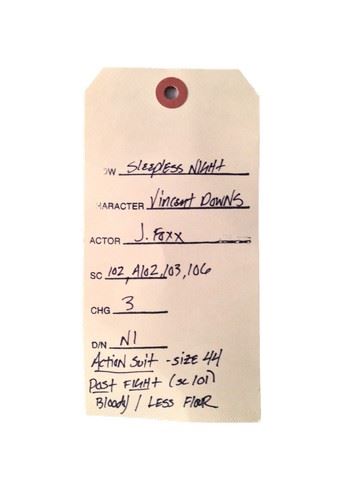 OW Sleepless Night
HARACTER Vincent Downs
ACTOR J. Foxx
SC 102, A102, 103, 106
CHG 3
D/N N1
Action Suit - size 44
Post Fight (sc 101)
Bloody / Less